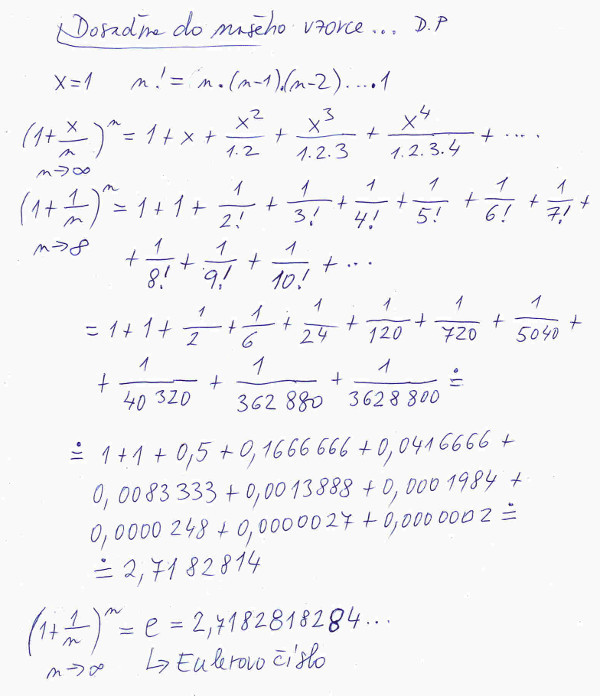 Dosaďme do našeho vzorce... D.P
x=1 n! = n.(n-1).(n-2)....1
(1+x/n)^n = 1 + x + x^2/1.2 + x^3/1.2.3 + x^4/1.2.3.4 + ....
n→∞
(1+1/n)^n = 1+1+ 1/2! + 1/3! + 1/4! + 1/5! + 1/6! + 1/7! +
n→8
+ 1/8! + 1/9! + 1/10! + ...
= 1+1+ 1/2 + 1/6 + 1/24 + 1/120 + 1/720 + 1/5040 +
+ 1/40 320 + 1/362 880 + 1/3628 800 ≐
≐ 1+1+0,5+0,1666666+0,0416666+
0,0083333+0,0013888+0,0001984+
0,0000248+0,0000027+0,0000002 ≐
≐ 2,7182814
(1+1/n)^n = e = 2,7182818284...
n→∞ ↳ Eulerovo číslo